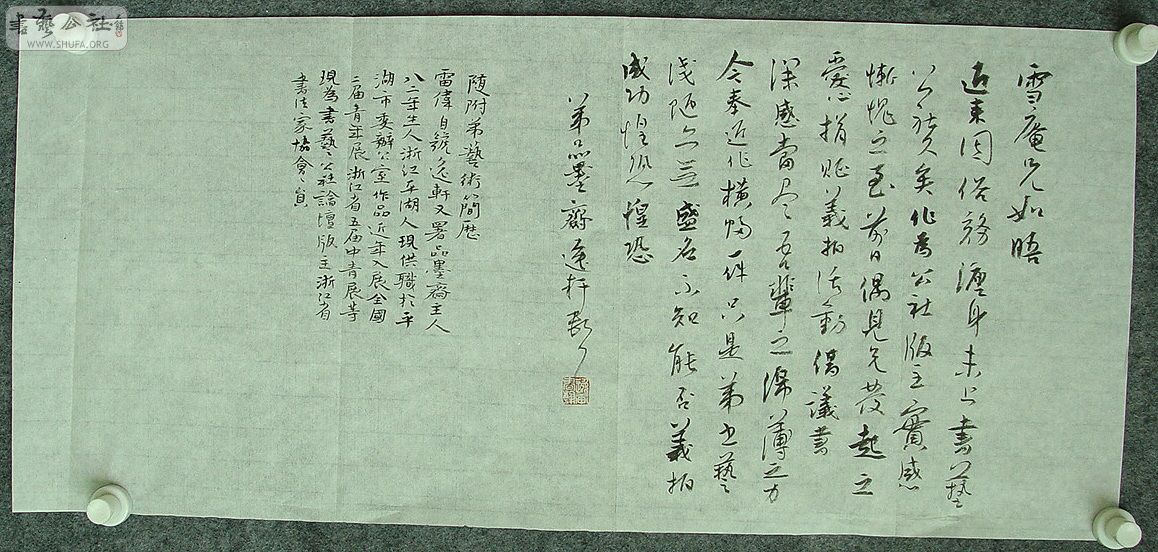 書藝公社
WWW.SHUFA.ORG
雪庵兄如晤
近來因俗務纏身未上書藝
公社久矣作為公社版主實感
慚愧之至前日偶見兄發起之
愛心捐賑義拍活動倡議書
深感當盡吾輩之綿薄之力
今奉近作橫幅一件只是弟書藝
淺陋亦無盛名不知能否義拍
成功惶恐惶恐
弟品墨齋逸軒敬上
隨附弟藝術簡歷
雷偉自號逸軒又署品墨齋主人
八二年生人浙江平湖人現供職於平
湖市委辦公室作品近年入展全國
二届青年展浙江省五届中青展等
現為書藝公社論壇版主浙江省
書法家協會會員